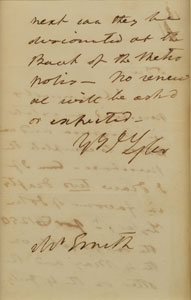 next can they be
discounted at the
Bank of the Metro
polis — No renew
al will be ask'd
or expected —
J Tyler
Mr Smith